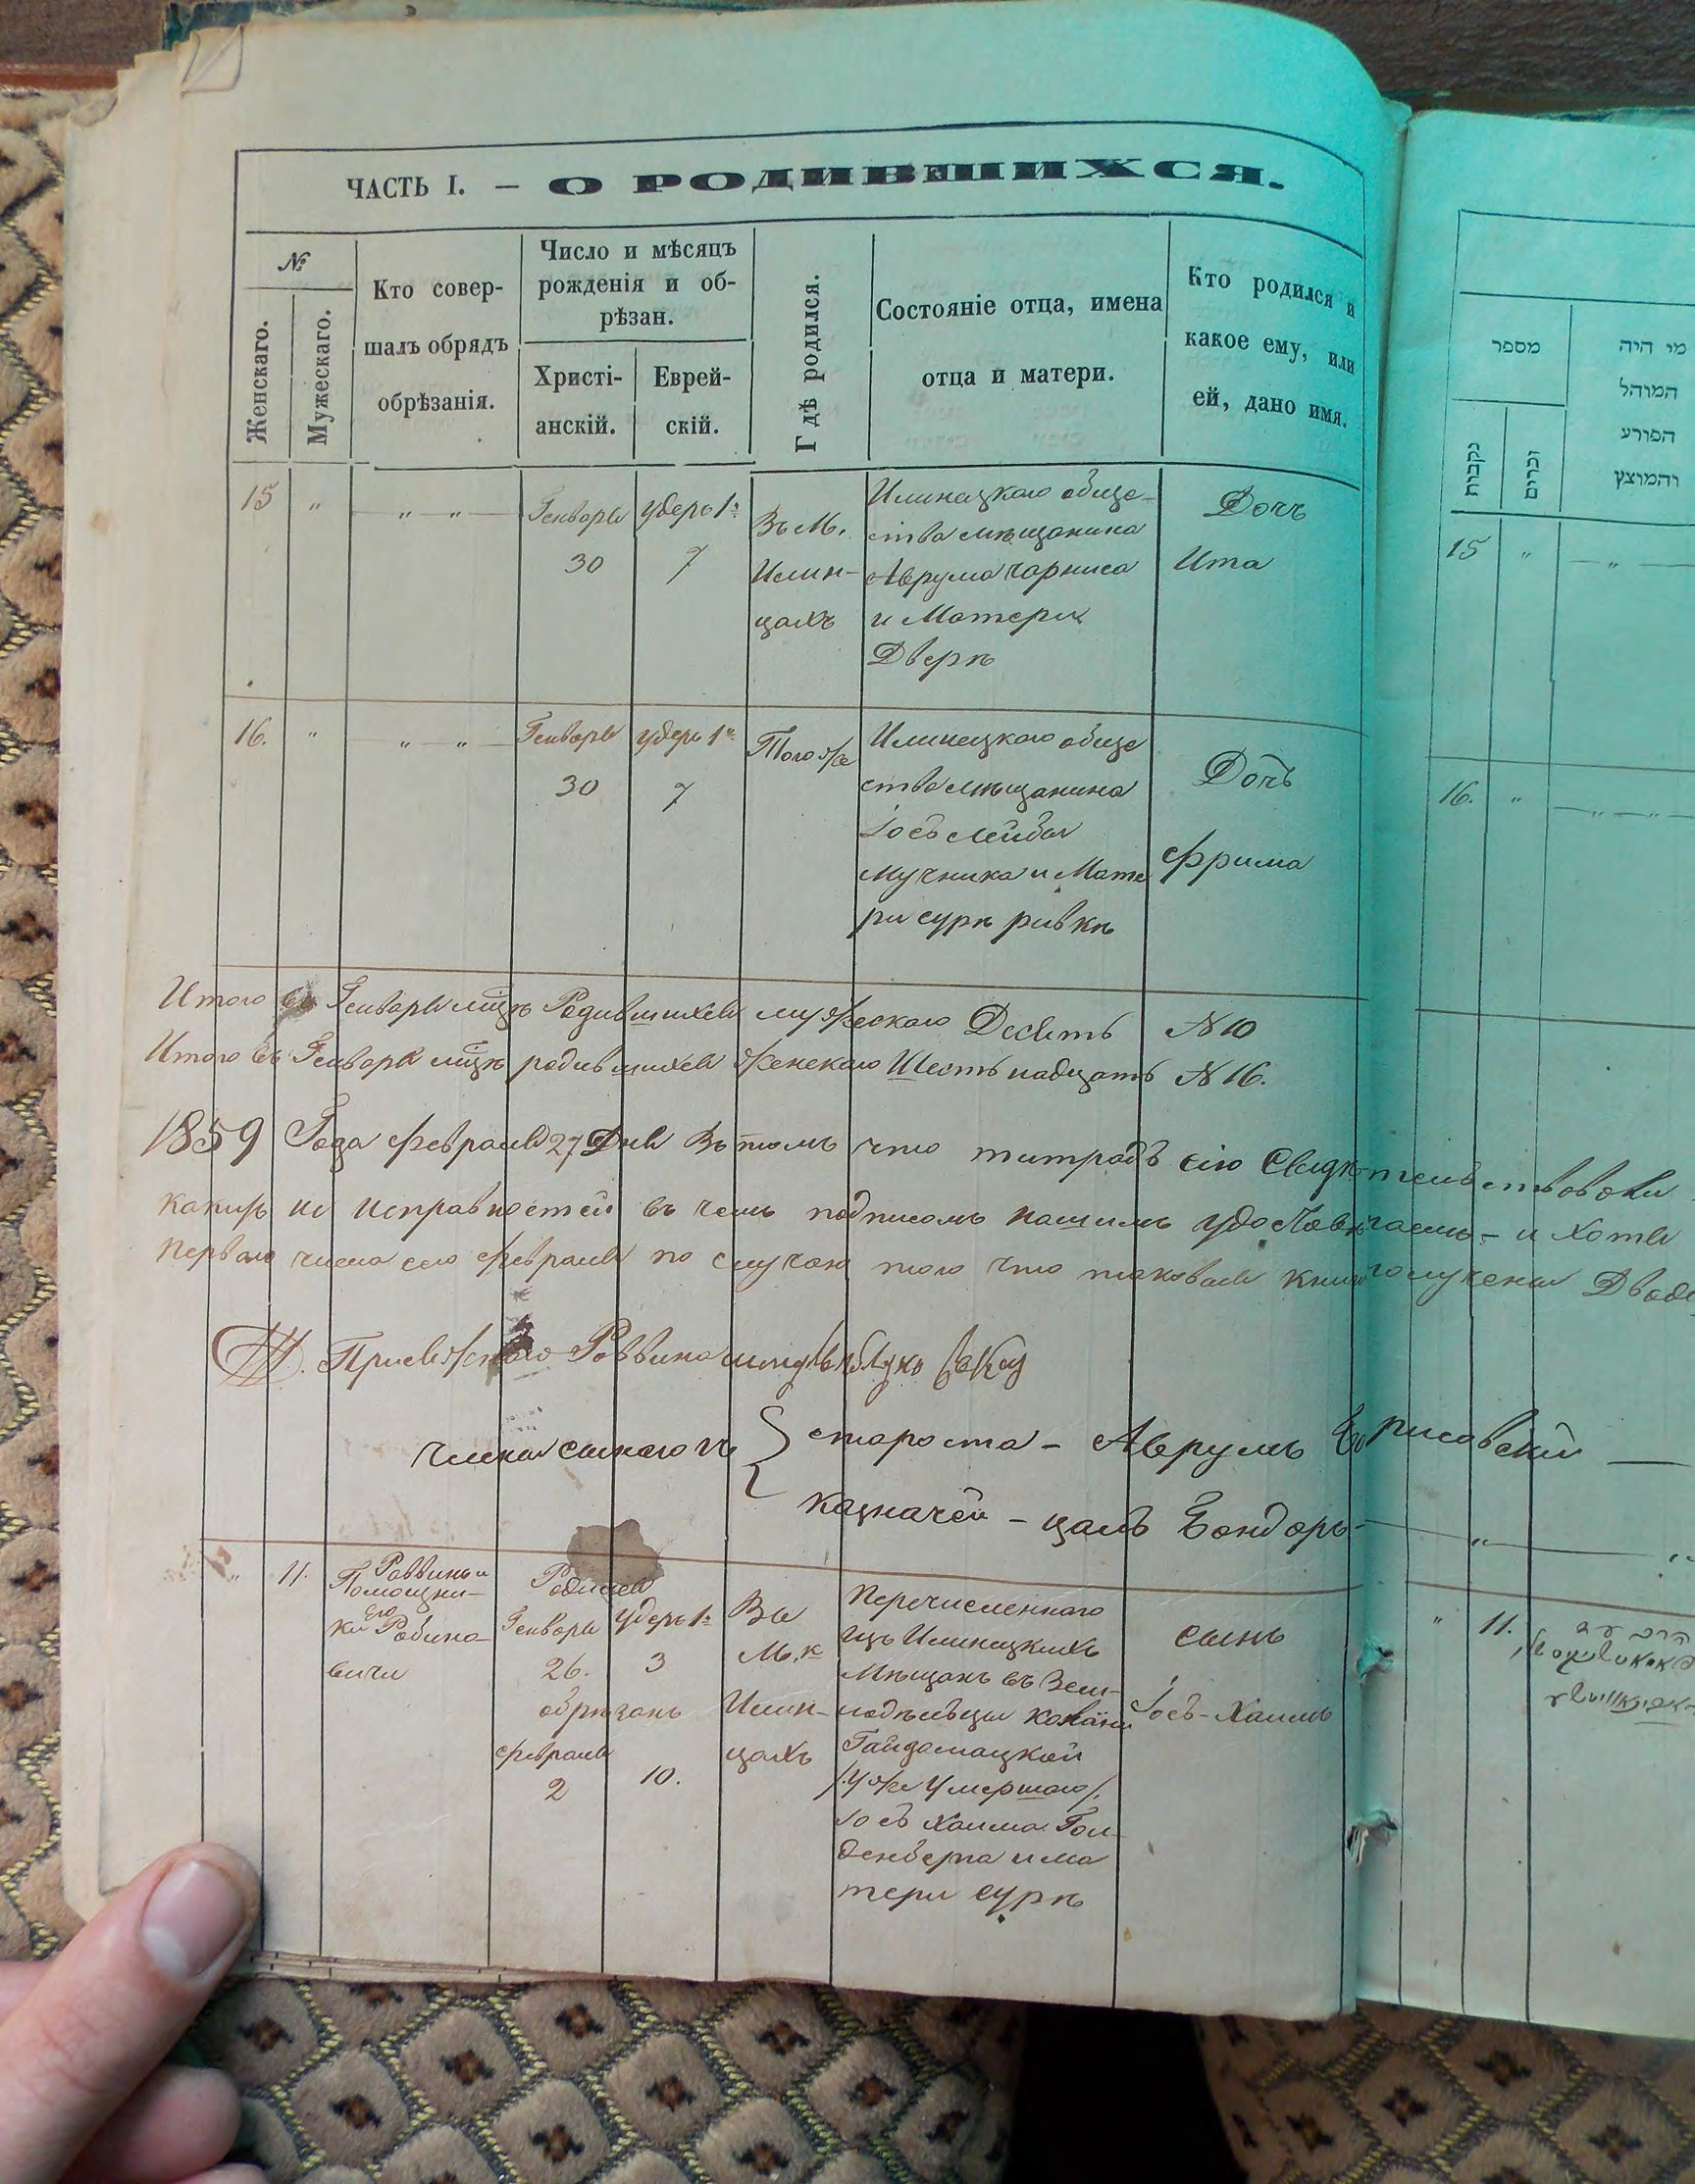 ЧАСТЬ I. — О РОДИВШИХСЯ.
№
Женскаго.
Мужескаго.
Кто совер-
шалъ обрядъ
обрѣзанія.
Число и мѣсяцъ
рожденія и об-
рѣзан.
Христі-
анскій.
Еврей-
скій.
Гдѣ родился.
Состояніе отца, имена
отца и матери.
Кто родился и
какое ему, или
ей, дано имя.
15 " — " — " — Генваря
30
7
Въ М.
Илин-
цахъ
Илинецкаго обще-
ства мѣщанина
Аврума Чарниса
и Матери
Двери
Дочъ
Ита
16. " — " — " — Генваря
30
7
Того же
Илинецкаго обще
ства мѣщанина
Іосъ Лейбы
Мучника и Мате
ри сурѣ ривкѣ
Дочъ
Фрима
Итого въ Генварѣ мцѣ Родившихся мужескаго Десять № 10
Итого въ Генварѣ мцѣ родившихся женскаго Шестьнадцать № 16.
1859 Года февраля 27 Дня Въ томъ что титрадъ сію Свидѣтельствовали
какихъ не исправностей въ чемъ подписомъ нашимъ удостовѣряемъ – и хотя
Перваго числа сего февраля по случаю того что таковая книга получена
Раввина
Члены сынагоги { староста – Аврумъ Борисовскій —
казначей – цаль Бондарь — " — "
" 11. Раввинъ и
Помощни-
ки Его Рабино-
вичи
Родился
Генваря
26.
3
обрѣзанъ
февраля
2
10.
Въ
М.к
Илин-
цахъ
Перечисленнаго
изъ Илинецкихъ
Мѣщанъ въ Зем-
ледѣльцы
Гайдамацкой
/: Уже Умершаго /:
Іосъ Хаима Гол-
денберга и ма
тери сурѣ
сынъ
Іосъ-Хаимъ
מספר
נקבות
זכרים
מי היה
המוהל
הפורע
והמוצץ
15 " — " —
16. " — " — " —
" 11.